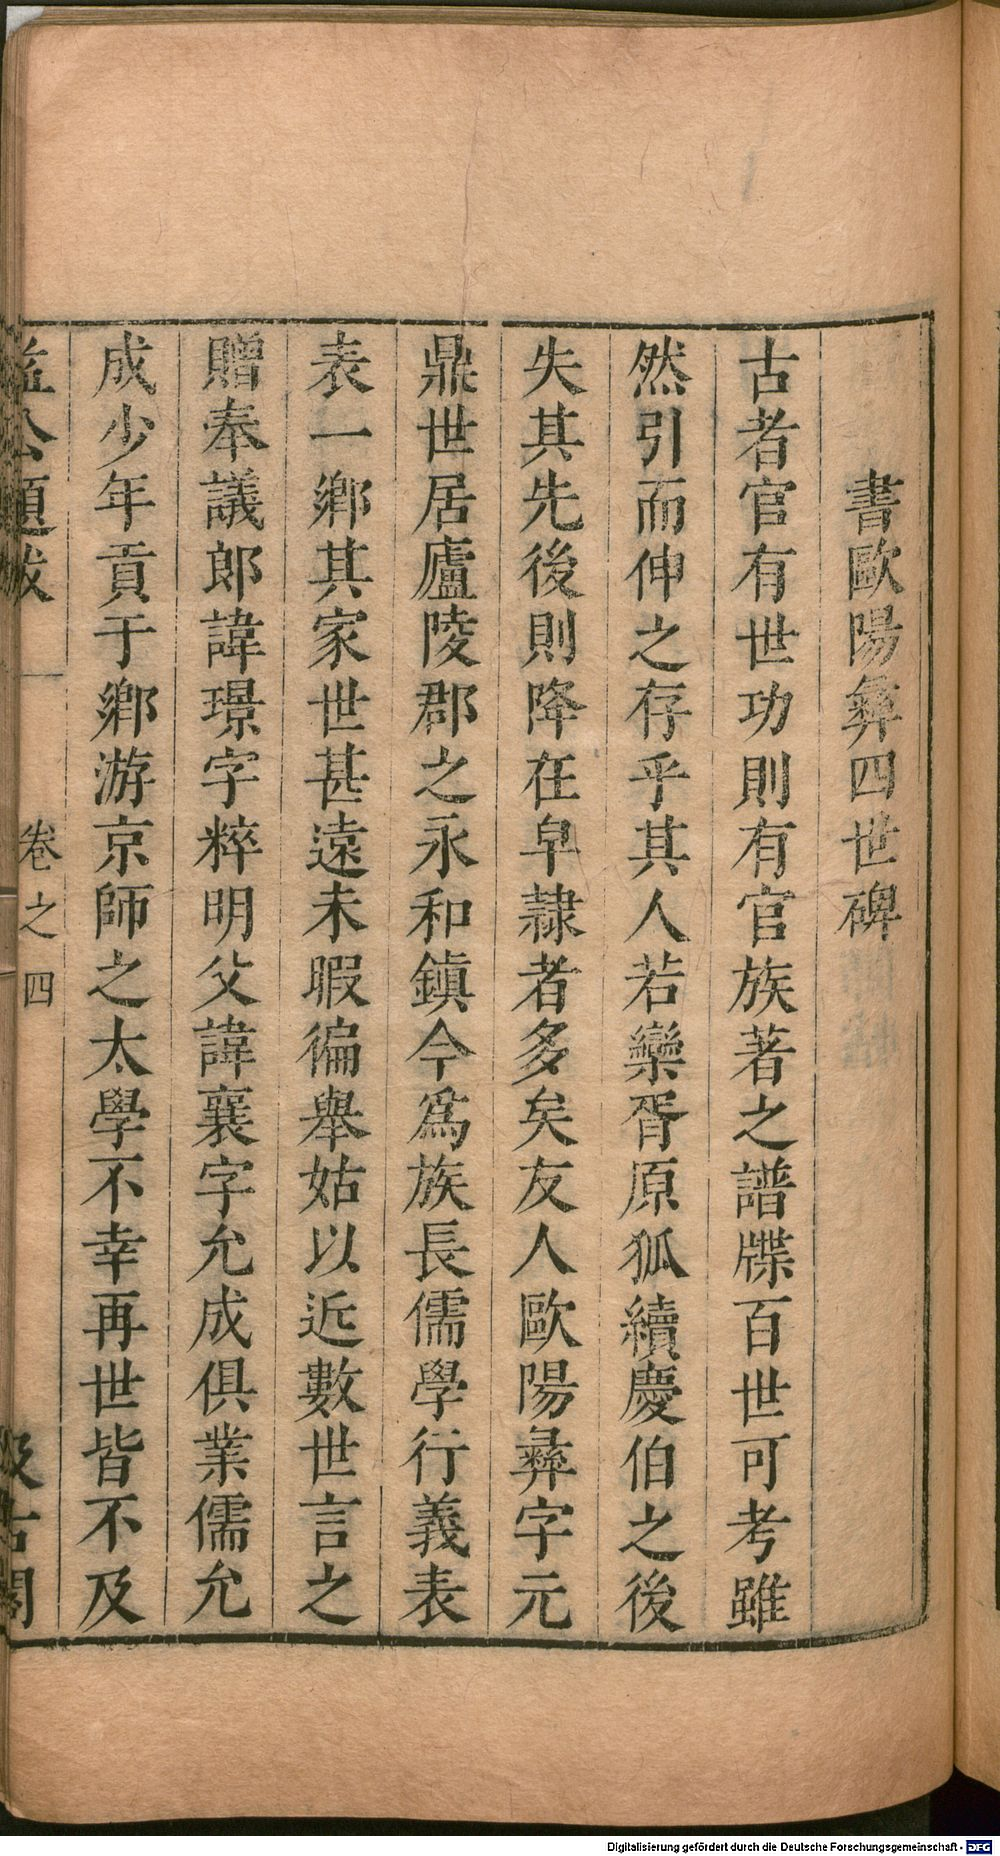 書歐陽彝四世碑
古者官有世功則有官族著之譜牒百世可考雖
然引而伸之存乎其人若欒胥原狐續慶伯之後
失其先後則降在皁隷者多矣友人歐陽彝字元
鼎世居廬陵郡之永和鎮今爲族長儒學行義表
表一鄉其家世甚遠未暇徧舉姑以近數世言之
贈奉議郎諱璟字粹明父諱襄字允成俱業儒允
成少年貢于鄉游京師之太學不幸再世皆不及
益公題跋 卷之四 汲古閣
Digitalisierung gefördert durch die Deutsche Forschungsgemeinschaft - DFG